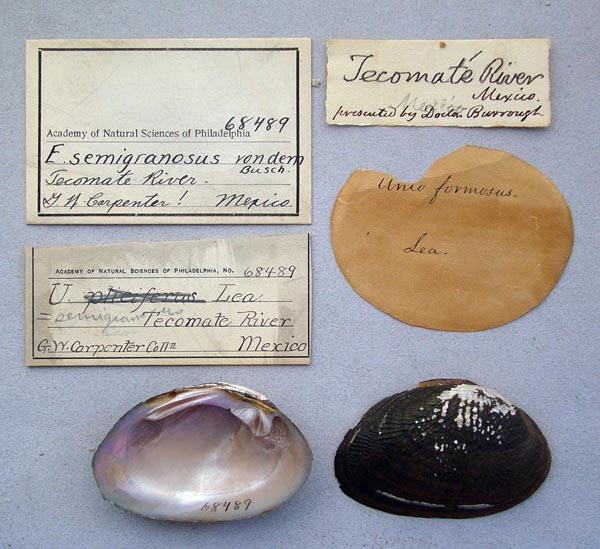 68489
Academy of Natural Sciences of Philadelphia
E. semigranosus von dem
Busch.
Tecomate River.
G W Carpenter! Mexico
Tecomaté River
Mexico.
Mexico
presented by Doctor Burrough
Unio formosus.
Lea.
ACADEMY OF NATURAL SCIENCES OF PHILADELPHIA, NO. 68489
U. pliciferus Lea.
=semigranosus
Tecomate River
G.W. Carpenter Coll Mexico
68489